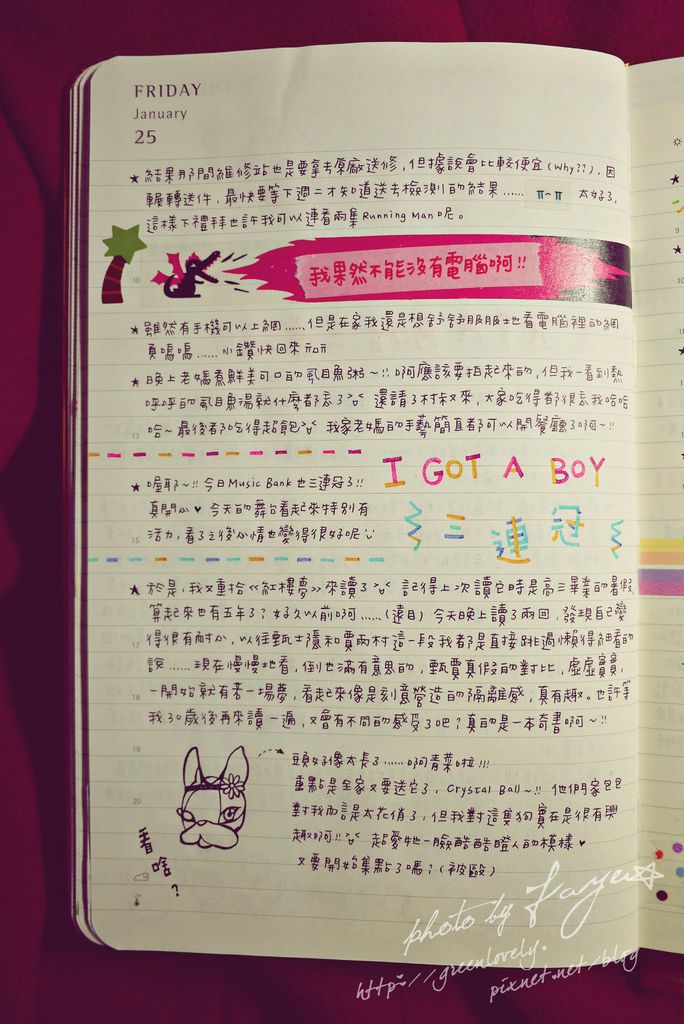 FRIDAY
January
25
★ 結果那間維修站也是要拿去原廠送修，但據說會比較便宜(Why??)，因
輾轉送件，最快要等下週二才知道送去檢測的結果...... π⌢π 太好了，
這樣下禮拜也許我可以連看兩集Running Man呢。
10
我果然不能沒有電腦啊!!
★ 雖然有手機可以上網......但是在家我還是想舒舒服服地看電腦裡的網
頁嗚嗚......小鑽快回來
★ 晚上老媽煮鮮美可口的虱目魚粥~!!啊應該要拍起來的，但我一看到熱
呼呼的虱目魚湯就什麼都忘了 還請了村夫又來，大家吃得都很忘我哈哈
13
哈~最後都吃得超飽 我家老媽的手藝簡直都可以開餐廳了啊~!!
I GOT A BOY
★ 喔耶~!!今日Music Bank也三連冠了!!
真開心♥ 今天的舞台看起來特別有
三連冠
15
活力，看了之後心情也變得很好呢
★ 於是，我又重拾<<紅樓夢>>來讀了 記得上次讀它時是高三畢業的暑假，
算起來也有五年了?好久以前啊......(遠目) 今天晚上讀了兩回，發現自己變
17
得很有耐心，以往甄士隱和賈雨村這一段我都是直接跳過懶得細看的
說......現在慢慢地看，倒也滿有意思的，甄賈真假的對比，虛虛實實，
18
一開始就有若一場夢，看起來像是刻意營造的隔離感，真有趣。也許等
我30歲後再來讀一遍，又會有不同的感受了吧?真的是一本奇書啊~!!
19
頭好像太長了......啊青菜啦!!!
重點是全家又要送它了，Crystal Ball~!! 他們家包包
20
對我而言是太花俏了，但我對這隻狗實在是很有興
趣啊!! 超愛牠一臉酷酷瞪人的模樣♥
又要開始集點了嗎?(被毆)
看啥?
photo by Faye☆
http://greenlovely.
pixnet.net/blog
9